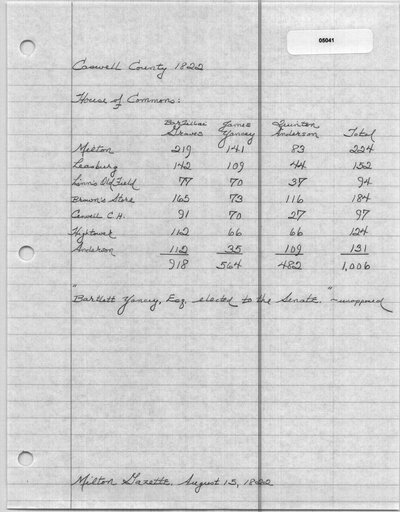 05041
Caswell County 1822
House of Commons:
Bartlett James Quinton
Yancey Anderson Total
Milton 219 141 83 224
Leasburg 142 109 44 152
Linn's Old Field 77 70 37 94
Brown's Store 165 73 116 184
Caswell C.H. 91 70 27 97
Hightower 112 66 66 124
Anderson 112 35 109 131
918 564 482 1,006
"Bartlett Yancey, Esq. elected to the Senate." - unopposed
Milton Gazette, August 15, 1822